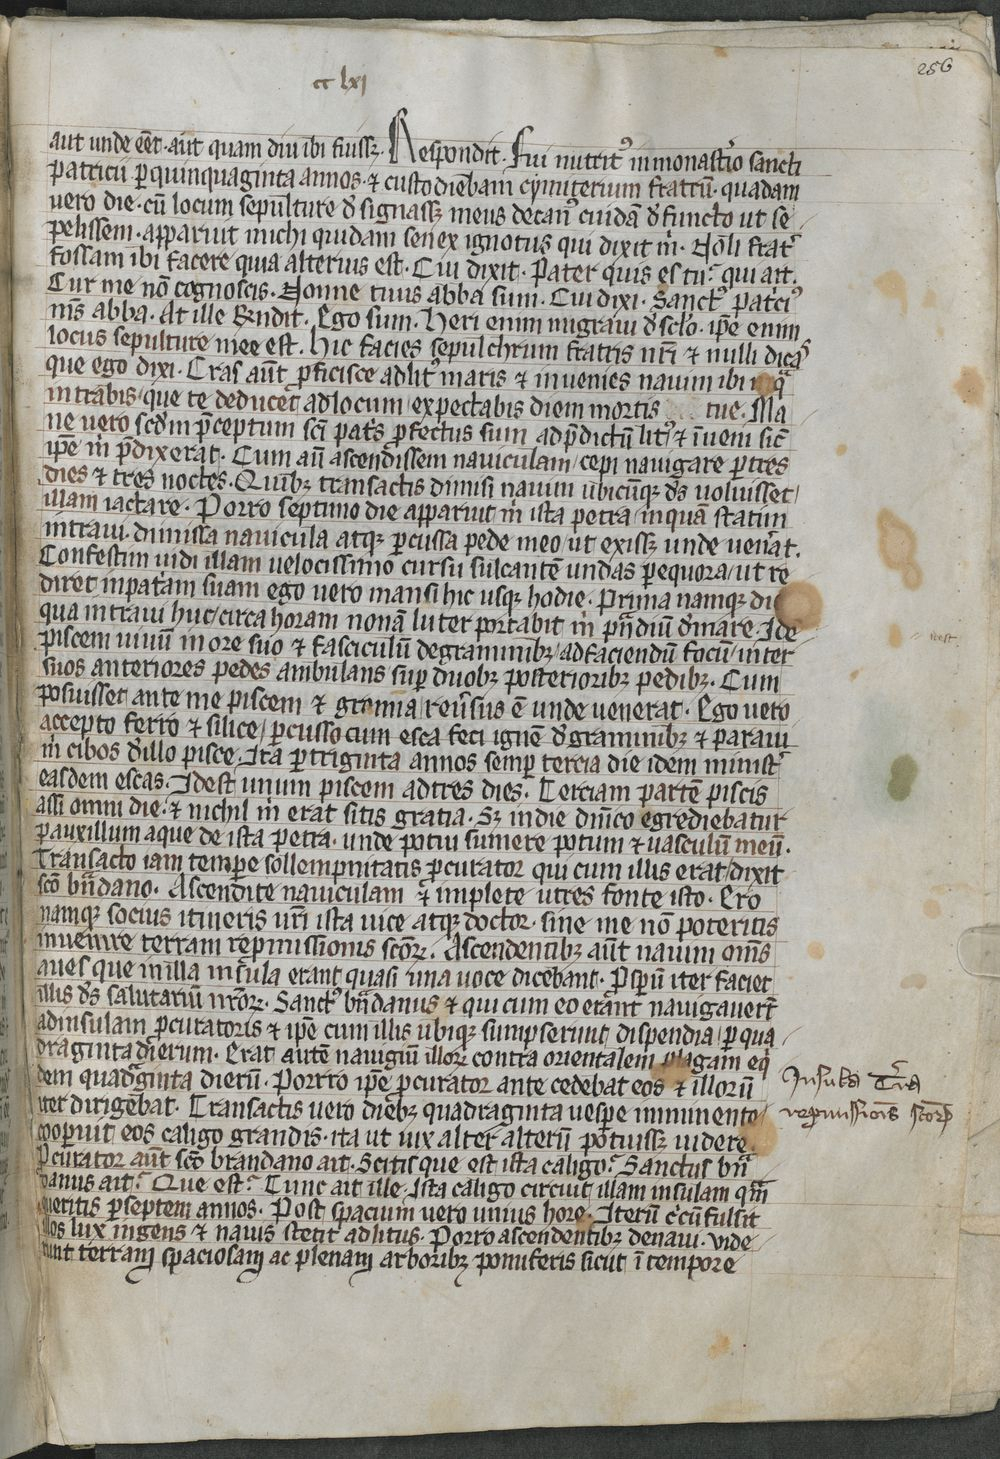 cc lxi
256
aut unde eēt · aut quam diu ibi fuissꝫ · Respondit · Fui nutrit᷒ in monast̉io sancti
patricii ꝑ quinquaginta annos · ⁊ custodiebam cymiterium fratrū · quadam
uero die · cū locum sepulture d̉signassꝫ meus decan᷒ cuidā d̉functo ut se
pelissem · apparuit michi quidam senex ignotus qui dixit m̉ · Noli frat̉
fossam ibi facere quia alterius est · Cui dixit · Pater quis es tu? qui ait ·
Cur me nō cognoscis · Nonne tuus abba sum · Cui dixi · Sanct᷒ patⁱci᷒
m̄s abba · At ille Rn̄dit · Ego sum · Heri enim migraui d̉ sclō · ip̄e enim
locus sepulture mee est · hic facies sepulchrum fratris nr̄i ⁊ nulli dicas
que ego dixi · Cras aūt ꝓficisce ad lit᷒ maris ⁊ inuenies nauim ibi in qͣ
intrabis / que te deducet ad locum / expectabis diem mortis tue · Ma
ne uero scd̄m p̄ceptum sc̄i pat̉s ꝓfectus sum ad p̄dictū lit᷒ ⁊ īueni sic̄
ip̄e m̉ p̄dixerat · Cum aū ascendissem nauiculam / cepi nauigare ꝑ tres
dies ⁊ tres noctes · Quibꝫ transactis dimisi nauim ubicūqꝫ d̄s uoluisset /
illam iactare · Porro septimo die apparuit m̉ ista petra / in quā statim
intraui · dimissa nauicula atqꝫ ꝑcussa pede meo / ut exissꝫ unde uen̉at ·
Confestim uidi illam uelocissimo cursu sulcantē undas ꝑ equora / ut re
diret in pat̉am suam ego uero mansi hic usqꝫ hodie · Prima namqꝫ di
qua intraui huc / circa horam nonā luter portabit m̉ pn̄diū d̉ mare · Ide
piscem unū in ore suo ⁊ fasciculū de graminibꝫ / ad faciendū focū / inter
suos anteriores pedes ambulans suꝑ duobꝫ posterioribꝫ pedibꝫ · Cum
posuisset ante me piscem ⁊ gramina / reủsus ē unde uenerat · Ego uero
accepto ferro ⁊ silice / ꝑcusso cum esca feci ignē d̉ graminibꝫ ⁊ paraui
m̉ cibos d̉ illo pisce · Ita ꝑ triginta annos semꝑ tercia die idem minist̉
easdem escas · Id est unum piscem ad tres dies · Terciam partē piscis
assi omni die · ⁊ nichil m̉ erat sitis gratia · Sꝫ in die dn̄ico egrediebatur
ꝑauxillum aque de ista petra · unde potui sumere potum ⁊ vasculū meū ·
Transacto iam temꝑe sollempnitatis ꝓcurator qui cum illis erat / dixit
sc̄o bn̄dano · Ascendite nauiculam ⁊ implete utres fonte isto · Ero
namqꝫ socius itineris ur̄i ista uice atqꝫ doctor · sine me nō poteritis
inuenire terram repmissionis sc̄oꝝ · Ascendentibꝫ aūt nauim om̄s
aues que in illa insula erant quasi una uoce dicebant · Ꝓspū iter faciet
illis d̄s salutariū nr̄oꝝ · Sanct᷒ bn̄danus ⁊ qui cum eo erant nauigauer̄t
ad insulam ꝓcuratoris ⁊ ip̄e cum illis ubiqꝫ sumpserunt dispendia / ꝑ qua
draginta dierum · Erat autē nauigiū illoꝝ contra orientalem plagam eq̉
dem quadͣginta dierū · Porrro ip̄e ꝓcurator ante cedebat eos ⁊ illorū
iter dirigebat · Transactis uero diebꝫ quadraginta uesꝑe imminente /
cooꝑuit eos caligo grandis · ita ut uix alter alterū potuissꝫ uidere
Ꝓcurator aūt sc̄o brandano ait · Scitis que est ista caligo? Sanctus bn̄
danus ait? Que est? Tunc ait ille · Ista caligo circuit illam insulam qͣm
queritis ꝑ septem annos · Post spacium uero unius hore · Iterū c̉cūfulsit
illos lux ingens ⁊ nauis stetit ad litus · Porro ascendentibꝫ de naui · vide
runt terram spaciosam ac plenam arboribꝫ pomiferis sicut ī tempore
Insula Tr̄a
repmissiois scōꝝ